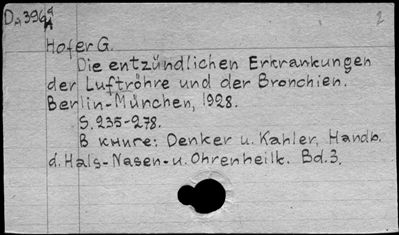 Hofer G.
Die entzündlichen Erkrankungen
der Luftröhre und der Bronchien.
Berlin-München, 1928.
S. 235-278.
В книге: Denker u. Kahler, Handb.
d. Hals-Nasen-u. Ohrenheilk. Bd.3.